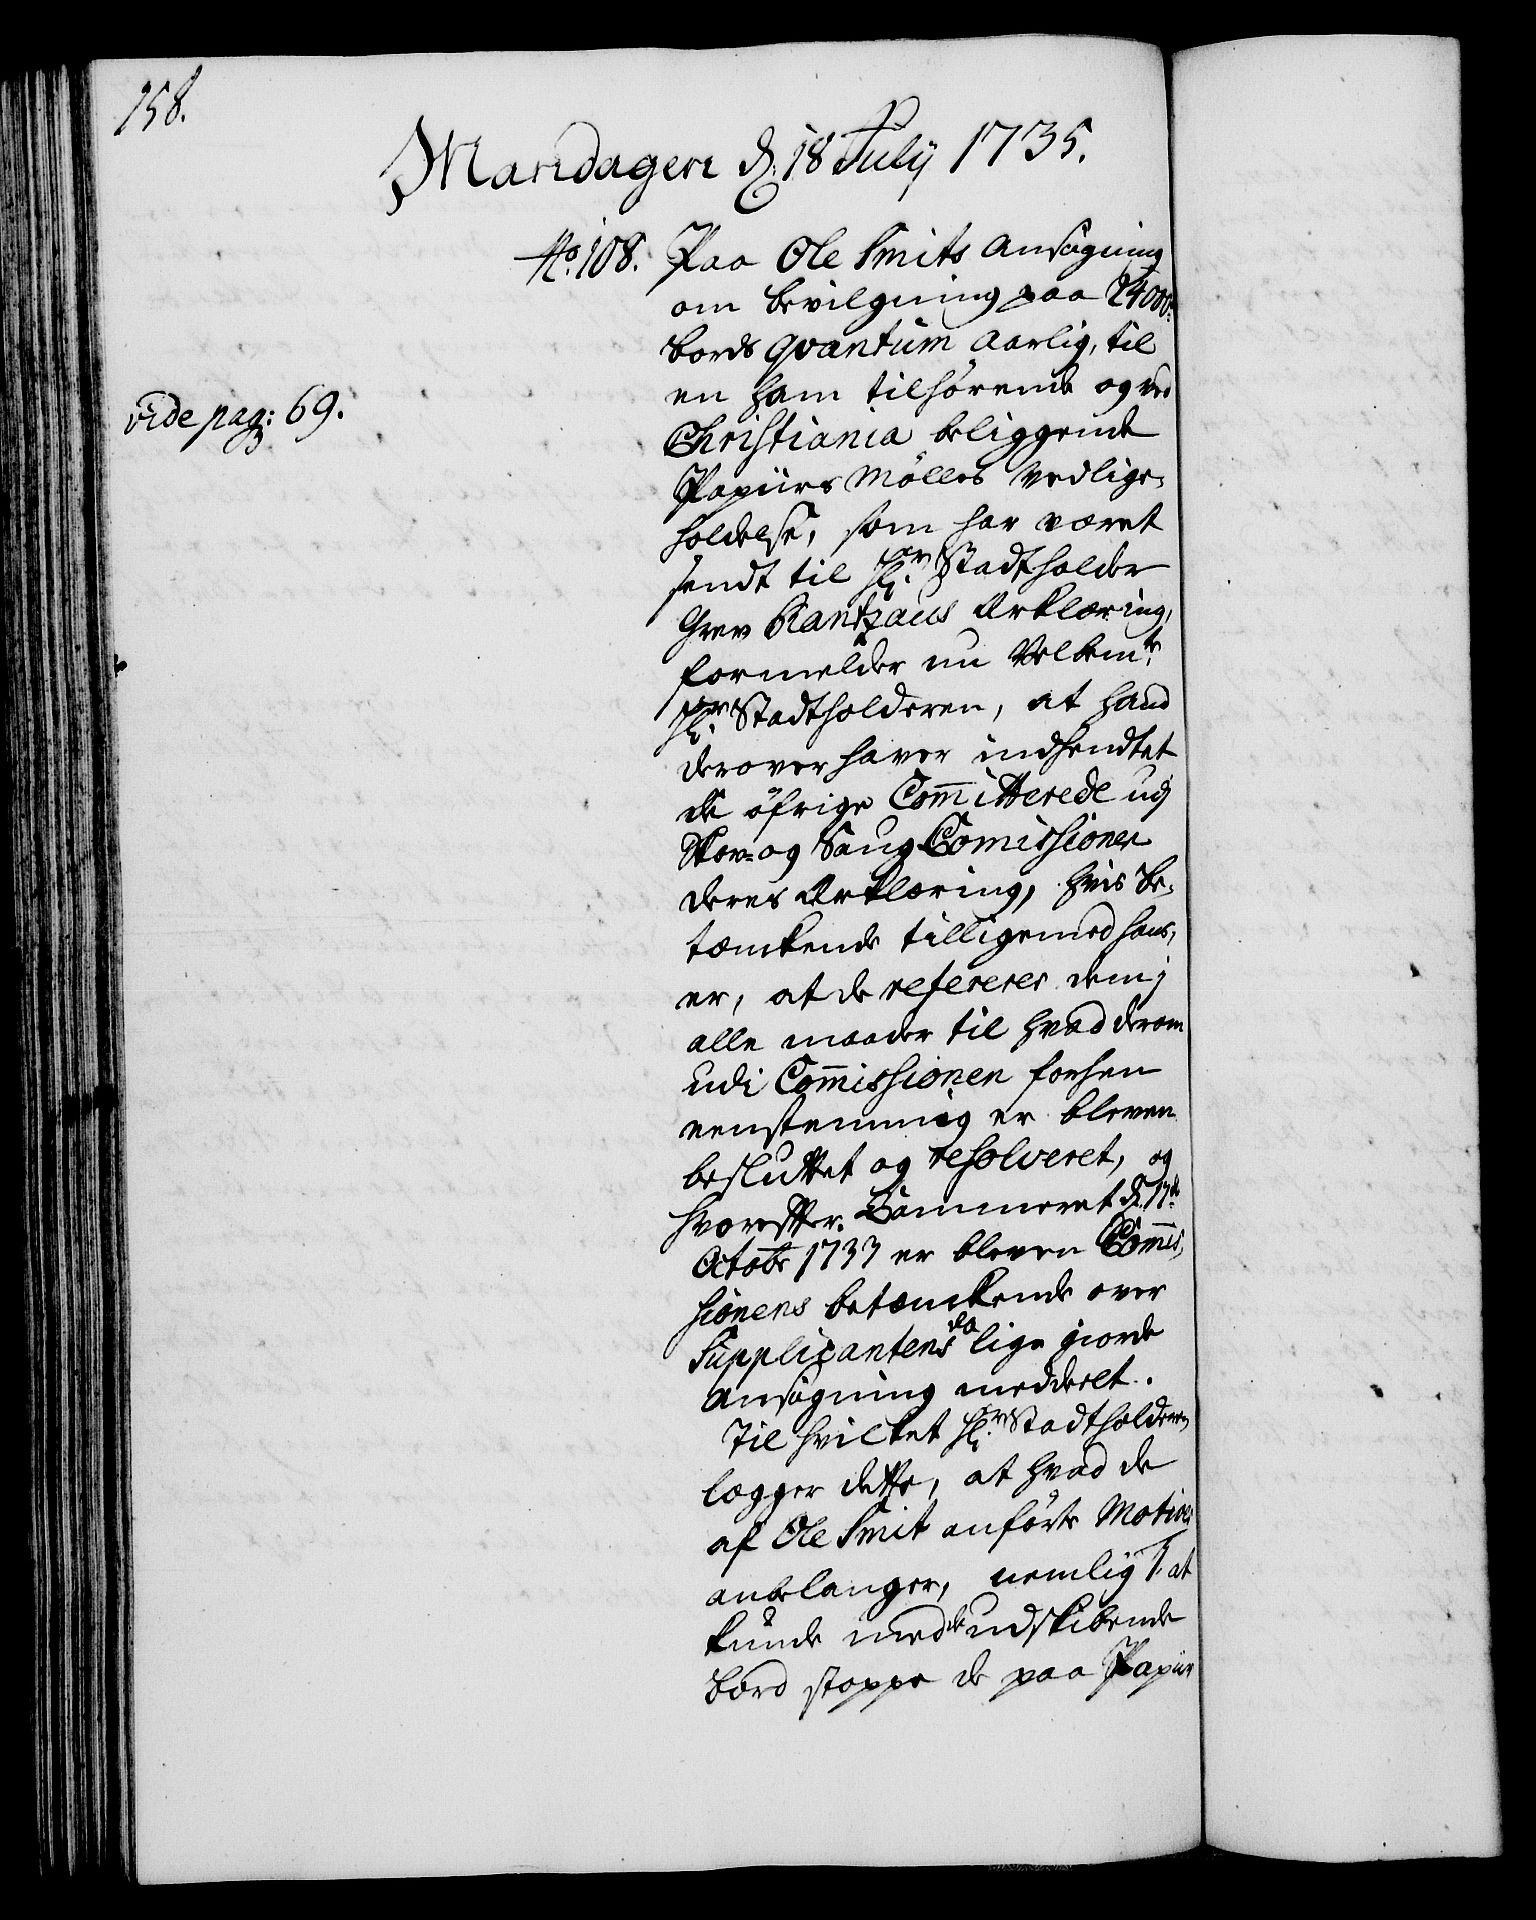 158.
Mandagen d. 18 July 1735.
No. 108. Paa Ole Smits Ansøgning
om bevilgning paa 24000
bords qvantum aarlig, til
en ham tilhørende og ved
Christiania beliggende
Papiirs Mølles vedlige-
vide pag: 69.
holdelse, som har været
sendt til Hr. Stadtholder
Grev Rantzaus Erklæring,
formelder nu Velbemte.
Hr. Stadtholderen, at hand
derover haver indhendtet
de öfrige Committerede udj
Skov- og Saug Comissionen
deres Erklæring, hvis be-
tænkende tilligemed hans,
er, at de referer dem j
alle maader til hvad derom
udi Commissionen forhen
eenstemmig er bleven
besluttet og resolveret, og
hvorefter Cammeret d. 17de
Octobr 1733 er bleven Commis-
sionens betænkende over
Supplicantens da lige giorde
Ansøgning meddeelt.
Til hvilket Hr Stadtholderen
legger dette, at hvad de
af Ole Smit anførte Motiver
anbelanger, nemlig 1. at
kunde med de udskibende
bord stoppe de paa Papiir